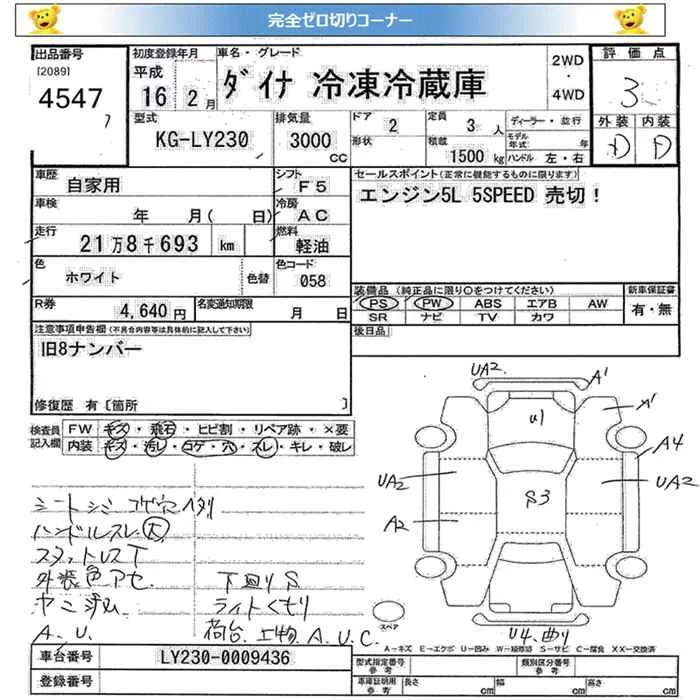 完全ゼロ切りコーナー
出品番号 初度登録年月 車名・グレード 2WD・4WD 評価点
[2089] 平成
4547 16年 2月 ダイナ 冷凍冷蔵庫 3
7 型式 排気量 ドア 定員 ディーラー・並行 外装 内装
KG-LY230 3000CC 2 3人 モデル年式 年 D D
形状 積載 1500kg ハンドル 左・右
車歴 自家用 シフト F5 セールスポイント(正常に機能するものに限ります)
車検 年 月(日) 冷房 AC エンジン5L 5SPEED 売切!
走行 21万8千693 km 燃料 軽油
色 ホワイト 色替 色コード 058
装備品(純正品に限り○をつけてください) 新車保証書
PS PW ABS エアB AW 有・無
SR ナビ TV カワ
R券 4,640円 名変通知期限 月 日
後日品
注意事項申告欄(不具合内容等は具体的に記入して下さい)
旧8ナンバー
修復歴 有〔箇所 〕
検査員記入欄 FW キズ・飛石・ヒビ割・リペア跡・×要
内装 キズ・汚レ・コゲ・穴・スレ・キレ・破レ
UA2 A1
U1 A1
A4
UA2 S3 UA2
A2
U4.曲り
シートシミ コゲ穴 ヘタリ
ハンドルスレ 大
スタットレスT
外装色アセ 下回りS
ヤニ汚ム ライトくもり
A.U. 荷台.上物 A.U.C.
スペア
A-キズ E-エクボ U-凹み W-補修跡 S-サビ C-腐食 XX-交換済
車台番号 LY230-0009436
登録番号
型式指定番号 参考 類別区分番号 参考
車庫証明用 参考 長さ cm 幅 cm 高さ cm